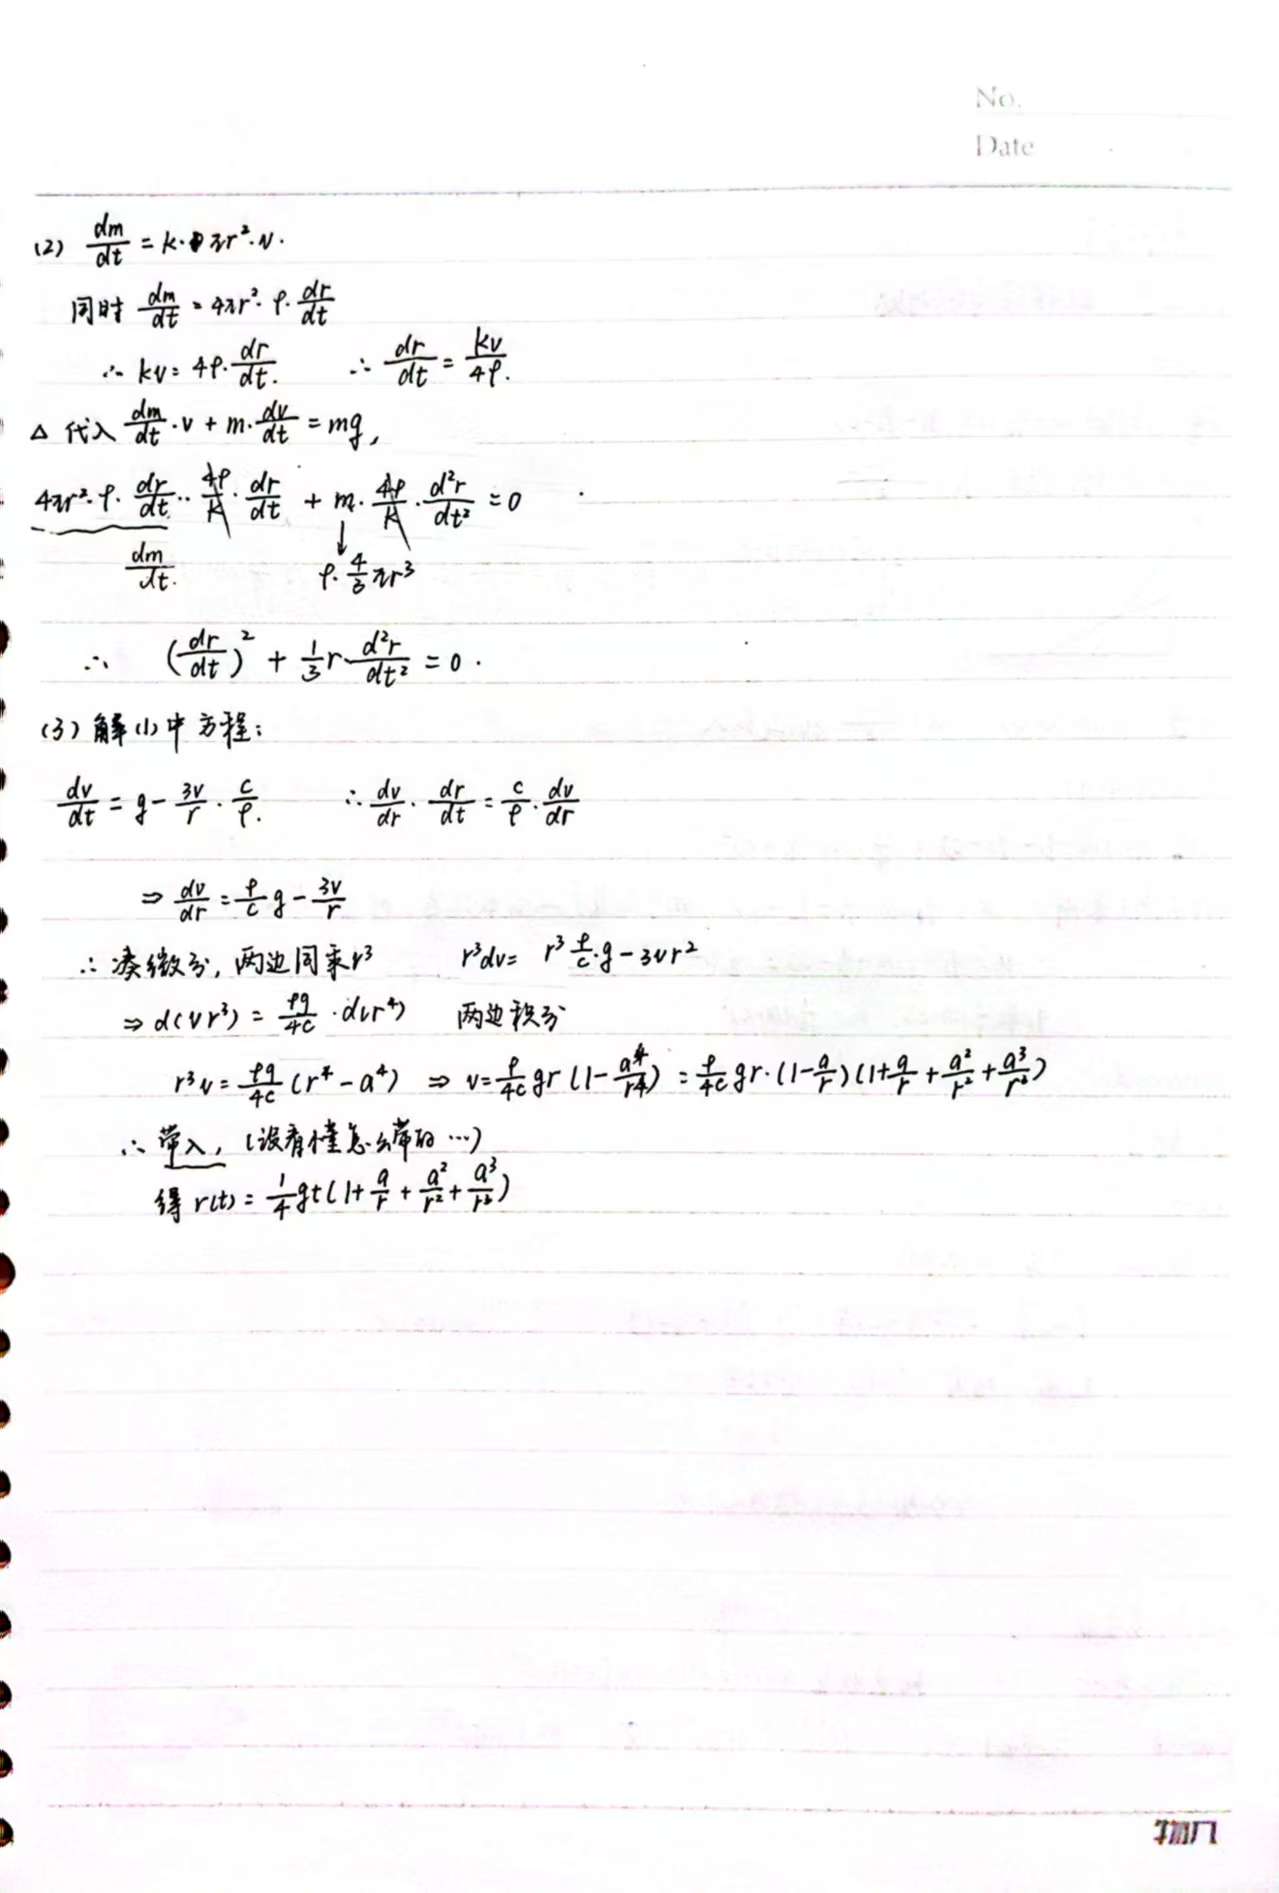 No.
Date
(2) dm/dt = k·πr²·v.
同时 dm/dt = 4πr²·ρ·dr/dt
∴ kv = 4ρ·dr/dt. ∴ dr/dt = kv/4ρ.
△ 代入 dm/dt·v + m·dv/dt = mg,
4πr²·ρ·dr/dt·4ρ/k·dr/dt + m·4ρ/k·d²r/dt² = 0
dm/dt. ↓ ρ·4/3πr³
∴ (dr/dt)² + 1/3 r d²r/dt² = 0.
(3) 解(1)中方程:
dv/dt = g - 3v/r · c/ρ. ∴ dv/dr · dr/dt = c/ρ · dv/dr
⇒ dv/dr = ρ/c g - 3v/r
∴ 凑微分, 两边同乘r³ r³dv = r³ ρ/c·g - 3vr²
⇒ d(vr³) = ρg/4c · d(r⁴) 两边积分
r³v = ρg/4c (r⁴ - a⁴) ⇒ v = ρ/4c gr (1 - a⁴/r4) = ρ/4c gr·(1 - a/r)(1 + a/r + a²/r² + a³/r³)
∴ 带入, (没看懂怎么带的 …)
得 r(t) = 1/4 gt (1 + a/r + a²/r² + a³/r³)